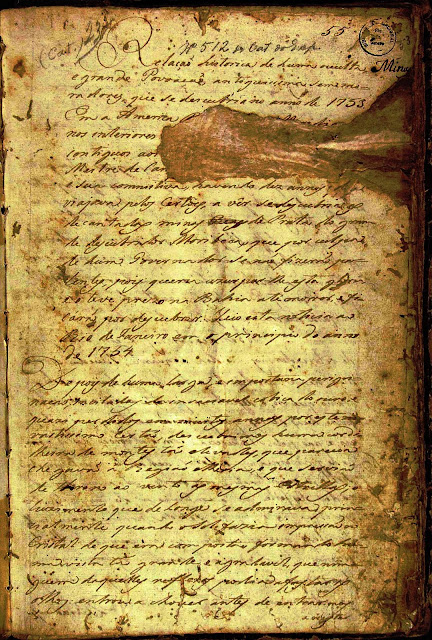 55
(Cod.
Nº 512 do Cat. do Imp.
Minas
Relação historica de huma occulta
e grande Povoação antiquissima sem mo-
radores, que se descubriu no anno de 1753
Em a America
nos interiores
contiguos aos
Mestre de Can
e sua comitiva, havendo dez annos, q
viajava pelos Certoẽs, a ver se descubria as
decantadas minas de Prata do gran-
de descubridor Moribeca, que por culpa
de hum Governador se não fizerão pa-
tentes, pois queria uzurparlhe esta gloria
e o teve prezo na Bahia até morrer, e fi-
carão por descubrir. Veio esta noticia ao
Rio de Janeiro em o principio do anno
de 1754.
Depois de huma larga, e importuna peregri-
nação, incitados da insaciavel cobiça do ouro, e
quazi perdidos em muitos annos por este
vastissimo Certão, descubrimos huma cordi-
lheira de montes tão elevados, que parecia
chegavão à Região etherea, e que servião
de throno ao vento, às mesmas Estrellas; o
luzimento que de longe se admirava, princi-
palmente quando o Sol fazia impressão ao
Cristal de que era composta formando hu-
ma vista tão grande e agradavel, que nin-
guem daquelles reflexos podia afastar os
olhos: entrou a chover antes de entrarmos